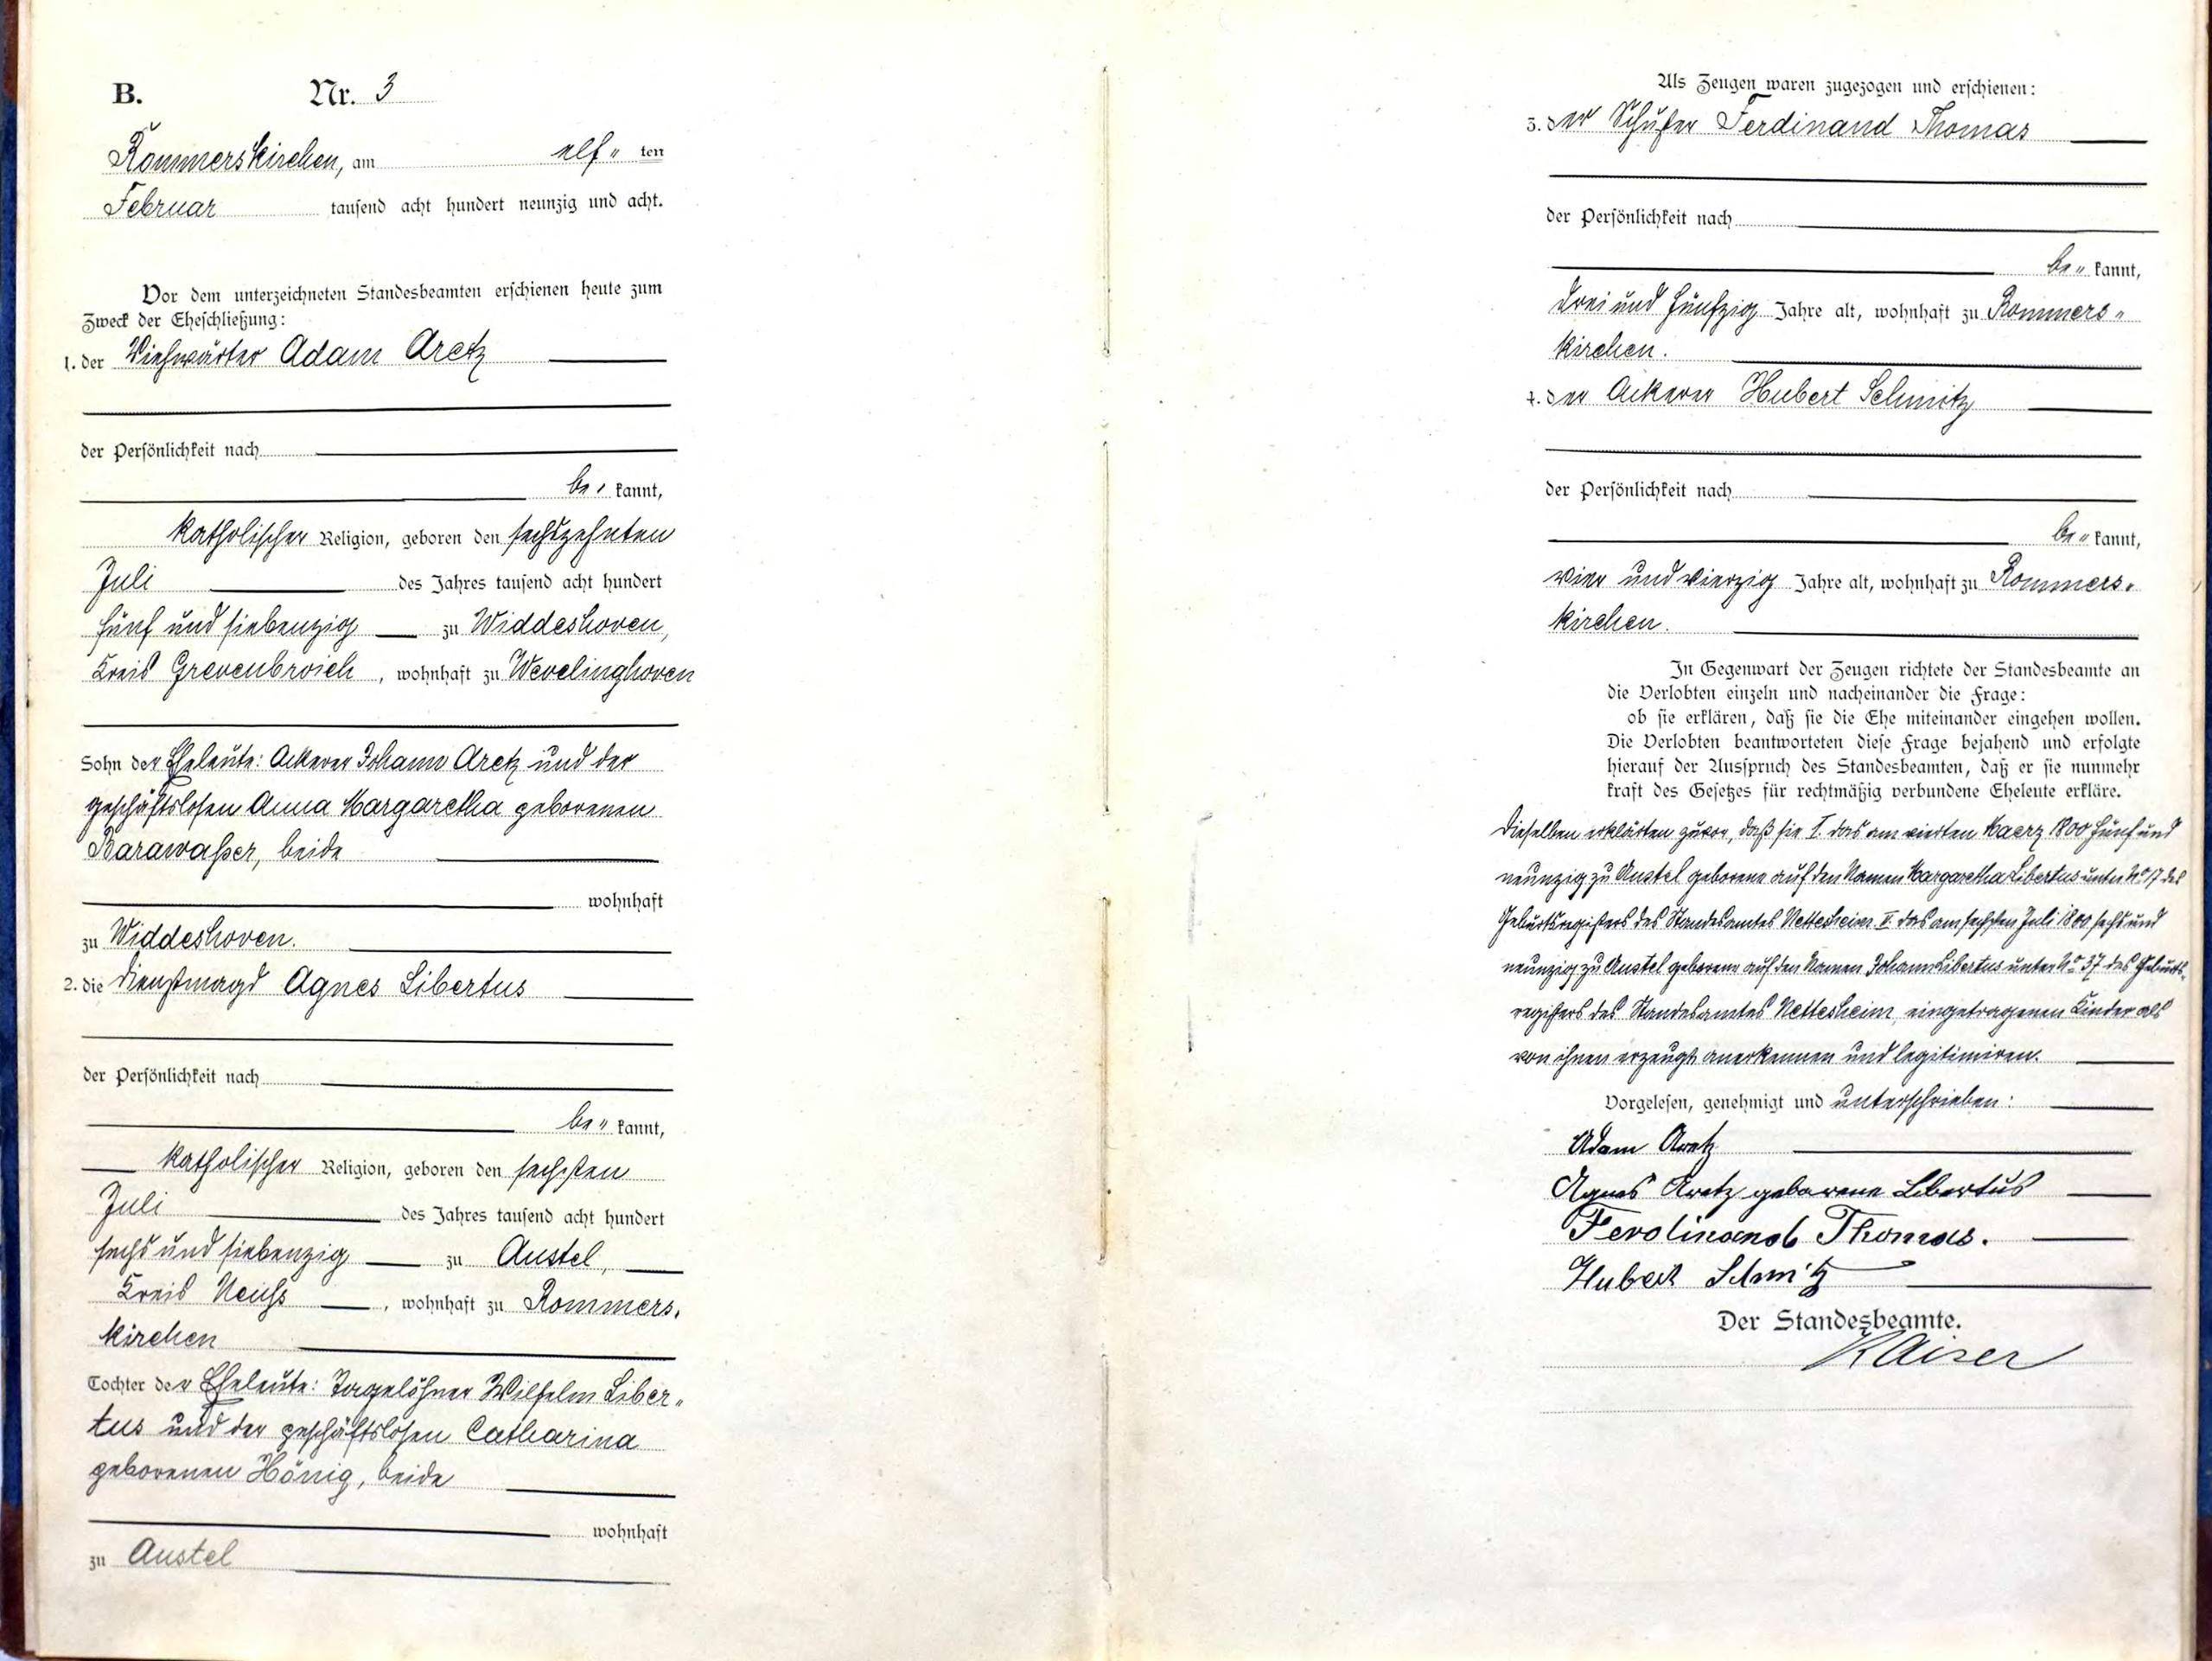 B. Nr. 3
Rommerskirchen, am elf" ten
Februar tausend acht hundert neunzig und acht.
Vor dem unterzeichneten Standesbeamten erschienen heute zum
Zweck der Eheschließung:
1. der Viehwärter Adam Aretz
der Persönlichkeit nach
be" kannt,
katholischer Religion, geboren den sechszehnten
Juli des Jahres tausend acht hundert
fünf und siebenzig zu Widdeshoven,
Kreis Grevenbroich, wohnhaft zu Wevelinghoven
Sohn der Eheleute: Ackerer Johann Aretz und der
geschäftslosen Anna Margaretha geborenen
Barawasser, beide
wohnhaft
zu Widdeshoven.
2. die Dienstmagd Agnes Libertus
der Persönlichkeit nach
be" kannt,
katholischer Religion, geboren den sechsten
Juli des Jahres tausend acht hundert
sechs und siebenzig zu Anstel,
Kreis Neuss, wohnhaft zu Rommers"
kirchen
Tochter der Eheleute: Tagelöhner Wilhelm Liber"
tus und der geschäftslosen Catharina
geborenen Hönig, beide
wohnhaft
zu Anstel
Als Zeugen waren zugezogen und erschienen:
3. der Schäfer Ferdinand Thomas
der Persönlichkeit nach
be" kannt,
drei und fünfzig Jahre alt, wohnhaft zu Rommers"
kirchen.
4. der Ackerer Hubert Schmitz
der Persönlichkeit nach
be" kannt,
vier und vierzig Jahre alt, wohnhaft zu Rommers"
kirchen.
In Gegenwart der Zeugen richtete der Standesbeamte an
die Verlobten einzeln und nacheinander die Frage:
ob sie erklären, daß sie die Ehe miteinander eingehen wollen.
Die Verlobten beantworteten diese Frage bejahend und erfolgte
hierauf der Ausspruch des Standesbeamten, daß er sie nunmehr
kraft des Gesetzes für rechtmäßig verbundene Eheleute erkläre.
Dieselben erklärten zuvor, daß sie I. das am vierten Maerz 1800 fünf und
neunzig zu Anstel geborene auf den Namen Margaretha Libertus unter No 17 des
Geburtsregisters des Standesamtes Nettesheim II. das am sechsten Juli 1800 sechs und
neunzig zu Anstel geborene auf den Namen Johann Libertus unter No 37 des Geburts"
registers des Standesamtes Nettesheim, eingetragenen Kinder als
von ihnen erzeugt anerkennen und legitimiren.
Vorgelesen, genehmigt und unterschrieben:
Adam Aretz
Agnes Aretz geborene Libertus
Ferdinand Thomas.
Hubert Schmitz
Der Standesbeamte.
Kaiser